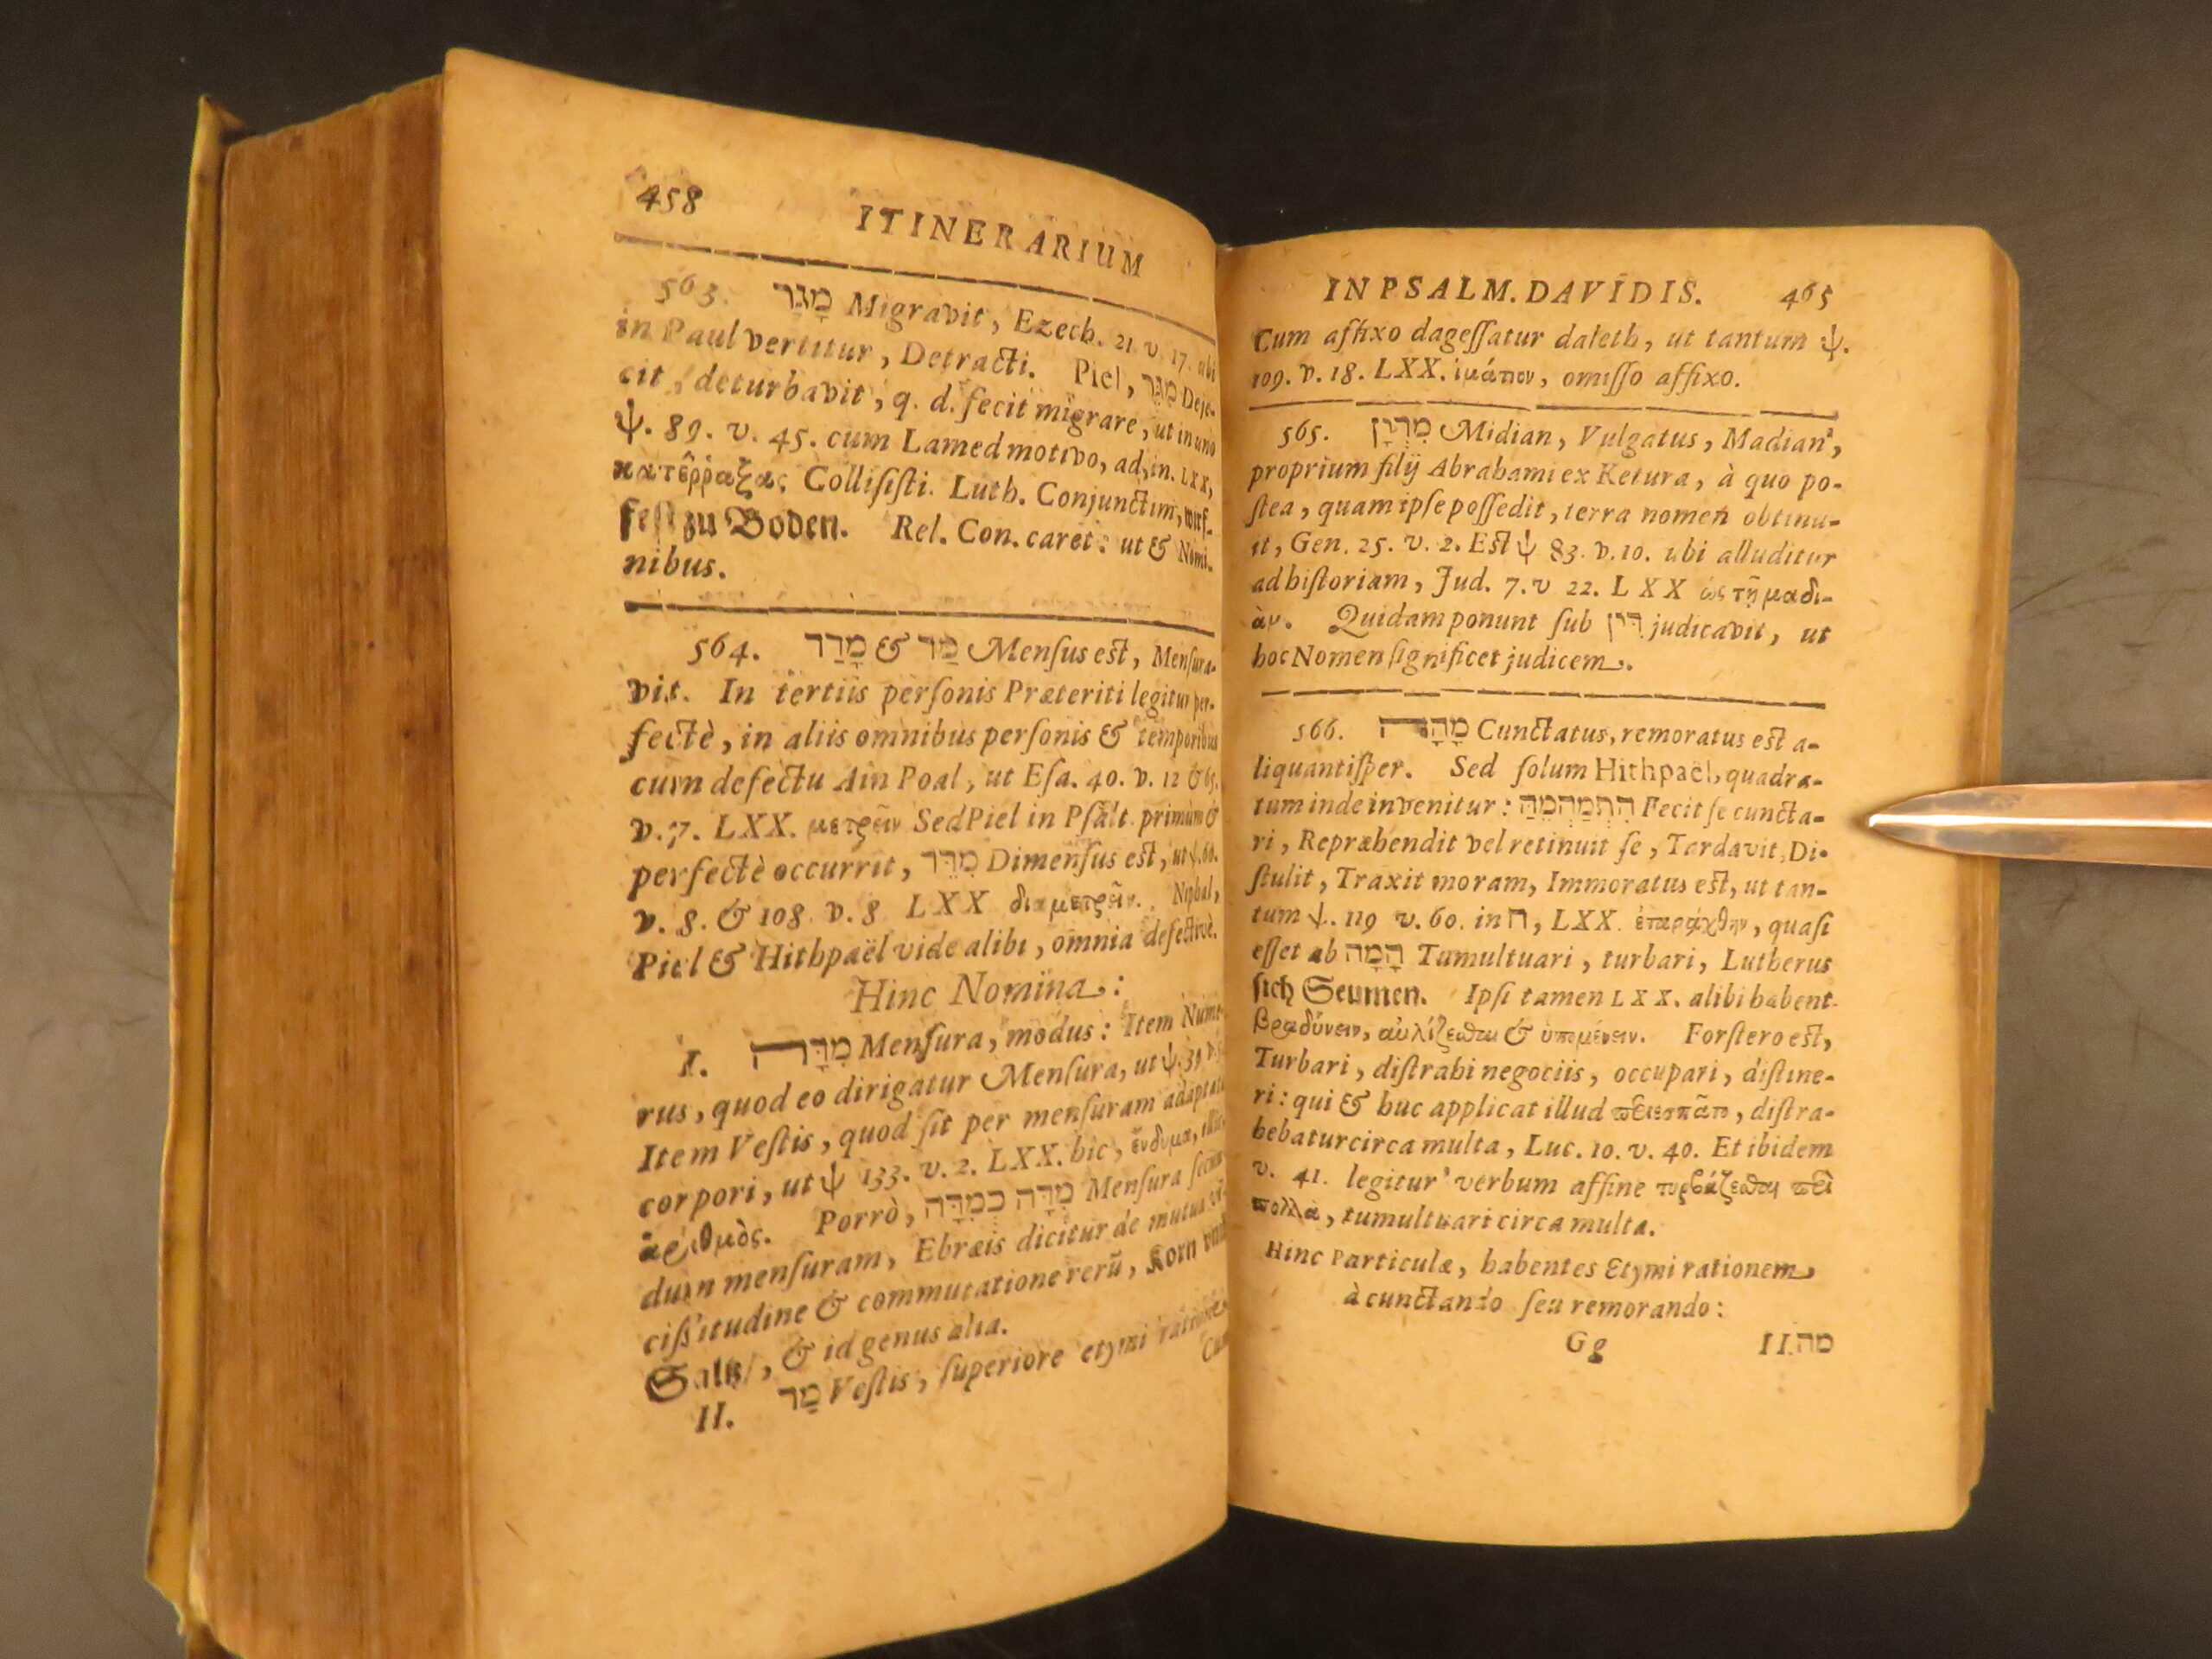 458 ITINERARIUM
563. מָגַר Migravit, Ezech. 21. v. 17. ubi
in Paul vertitur, Detracti. Piel, מִגֵּר Deje-
cit, deturbavit, q. d. fecit migrare, ut in uno
ψ. 89. v. 45. cum Lamed motivo, ad, in. LXX,
κατέῤῥαξας Collisisti. Luth. Conjunctim, wirf-
fest zu Boden. Rel. Con. caret: ut & Nomi-
nibus.
564. מָדַד & מַד Mensus est, Mensura-
vit. In tertiis personis Præteriti legitur per-
fectè, in aliis omnibus personis & temporibus
cum defectu Ain Poal, ut Esa. 40. v. 12 & 65.
v. 7. LXX. μετρεῖν Sed Piel in Psalt. primùm &
perfectè occurrit, מִדֵּד Dimensus est, ut ψ. 60.
v. 8. & 108 v. 8 LXX διαμετρεῖν. Niphal,
Piel & Hithpaël vide alibi, omnia defectivè.
Hinc Nomina:
I. מִדָּה Mensura, modus: Item Nume-
rus, quod eo dirigatur Mensura, ut ψ. 39
Item Vestis, quod sit per mensuram adaptata
corpori, ut ψ 133. v. 2. LXX. hic, ἔνδυμα, illic,
ἀριθμὸς. Porrò, מִדָּה כְּמִדָּה Mensura secun-
dum mensuram, Ebræis dicitur de mutua vi-
cissitudine & commutatione rerũ, Korn umb
Saltz/, & id genus alia.
II. מַד Vestis, superiore etymi ratione
Cum
IN PSALM. DAVIDIS. 465
Cum affixo dagessatur daleth, ut tantum ψ.
109. v. 18. LXX. ἱμάτιον, omisso affixo.
565. מִדְיָן Midian, Vulgatus, Madian,
proprium filij Abrahami ex Ketura, à quo po-
stea, quam ipse possedit, terra nomen obtinu-
it, Gen. 25. v. 2. Est ψ 83. v. 10. ubi alluditur
ad historiam, Jud. 7. v 22. LXX ὡς τῇ μαδι-
ὰμ. Quidam ponunt sub דִּין judicavit, ut
hoc Nomen significet judicem.
566. מָהַהּ Cunctatus, remoratus est a-
liquantisper. Sed solum Hithpaël, quadra-
tum inde invenitur: הִתְמַהְמֵהַּ Fecit se cuncta-
ri, Repræhendit vel retinuit se, Tardavit, Di-
stulit, Traxit moram, Immoratus est, ut tan-
tum ψ. 119 v. 60. in ח, LXX. ἐταράχθην, quasi
esset ab הָמָה Tumultuari, turbari, Lutherus
sich Seumen. Ipsi tamen LXX. alibi habent
βραδύνειν, αὐλίζεσθαι & ὑπομένειν. Forstero est,
Turbari, distrahi negociis, occupari, distine-
ri: qui & huc applicat illud περιεσπᾶτο, distra-
hebatur circa multa, Luc. 10. v. 40. Et ibidem
v. 41. legitur verbum affine τυρβάζεσθαι περὶ
πολλὰ, tumultuari circa multa.
Hinc Particulæ, habentes Etymi rationem
à cunctando seu remorando:
Gg II. מה